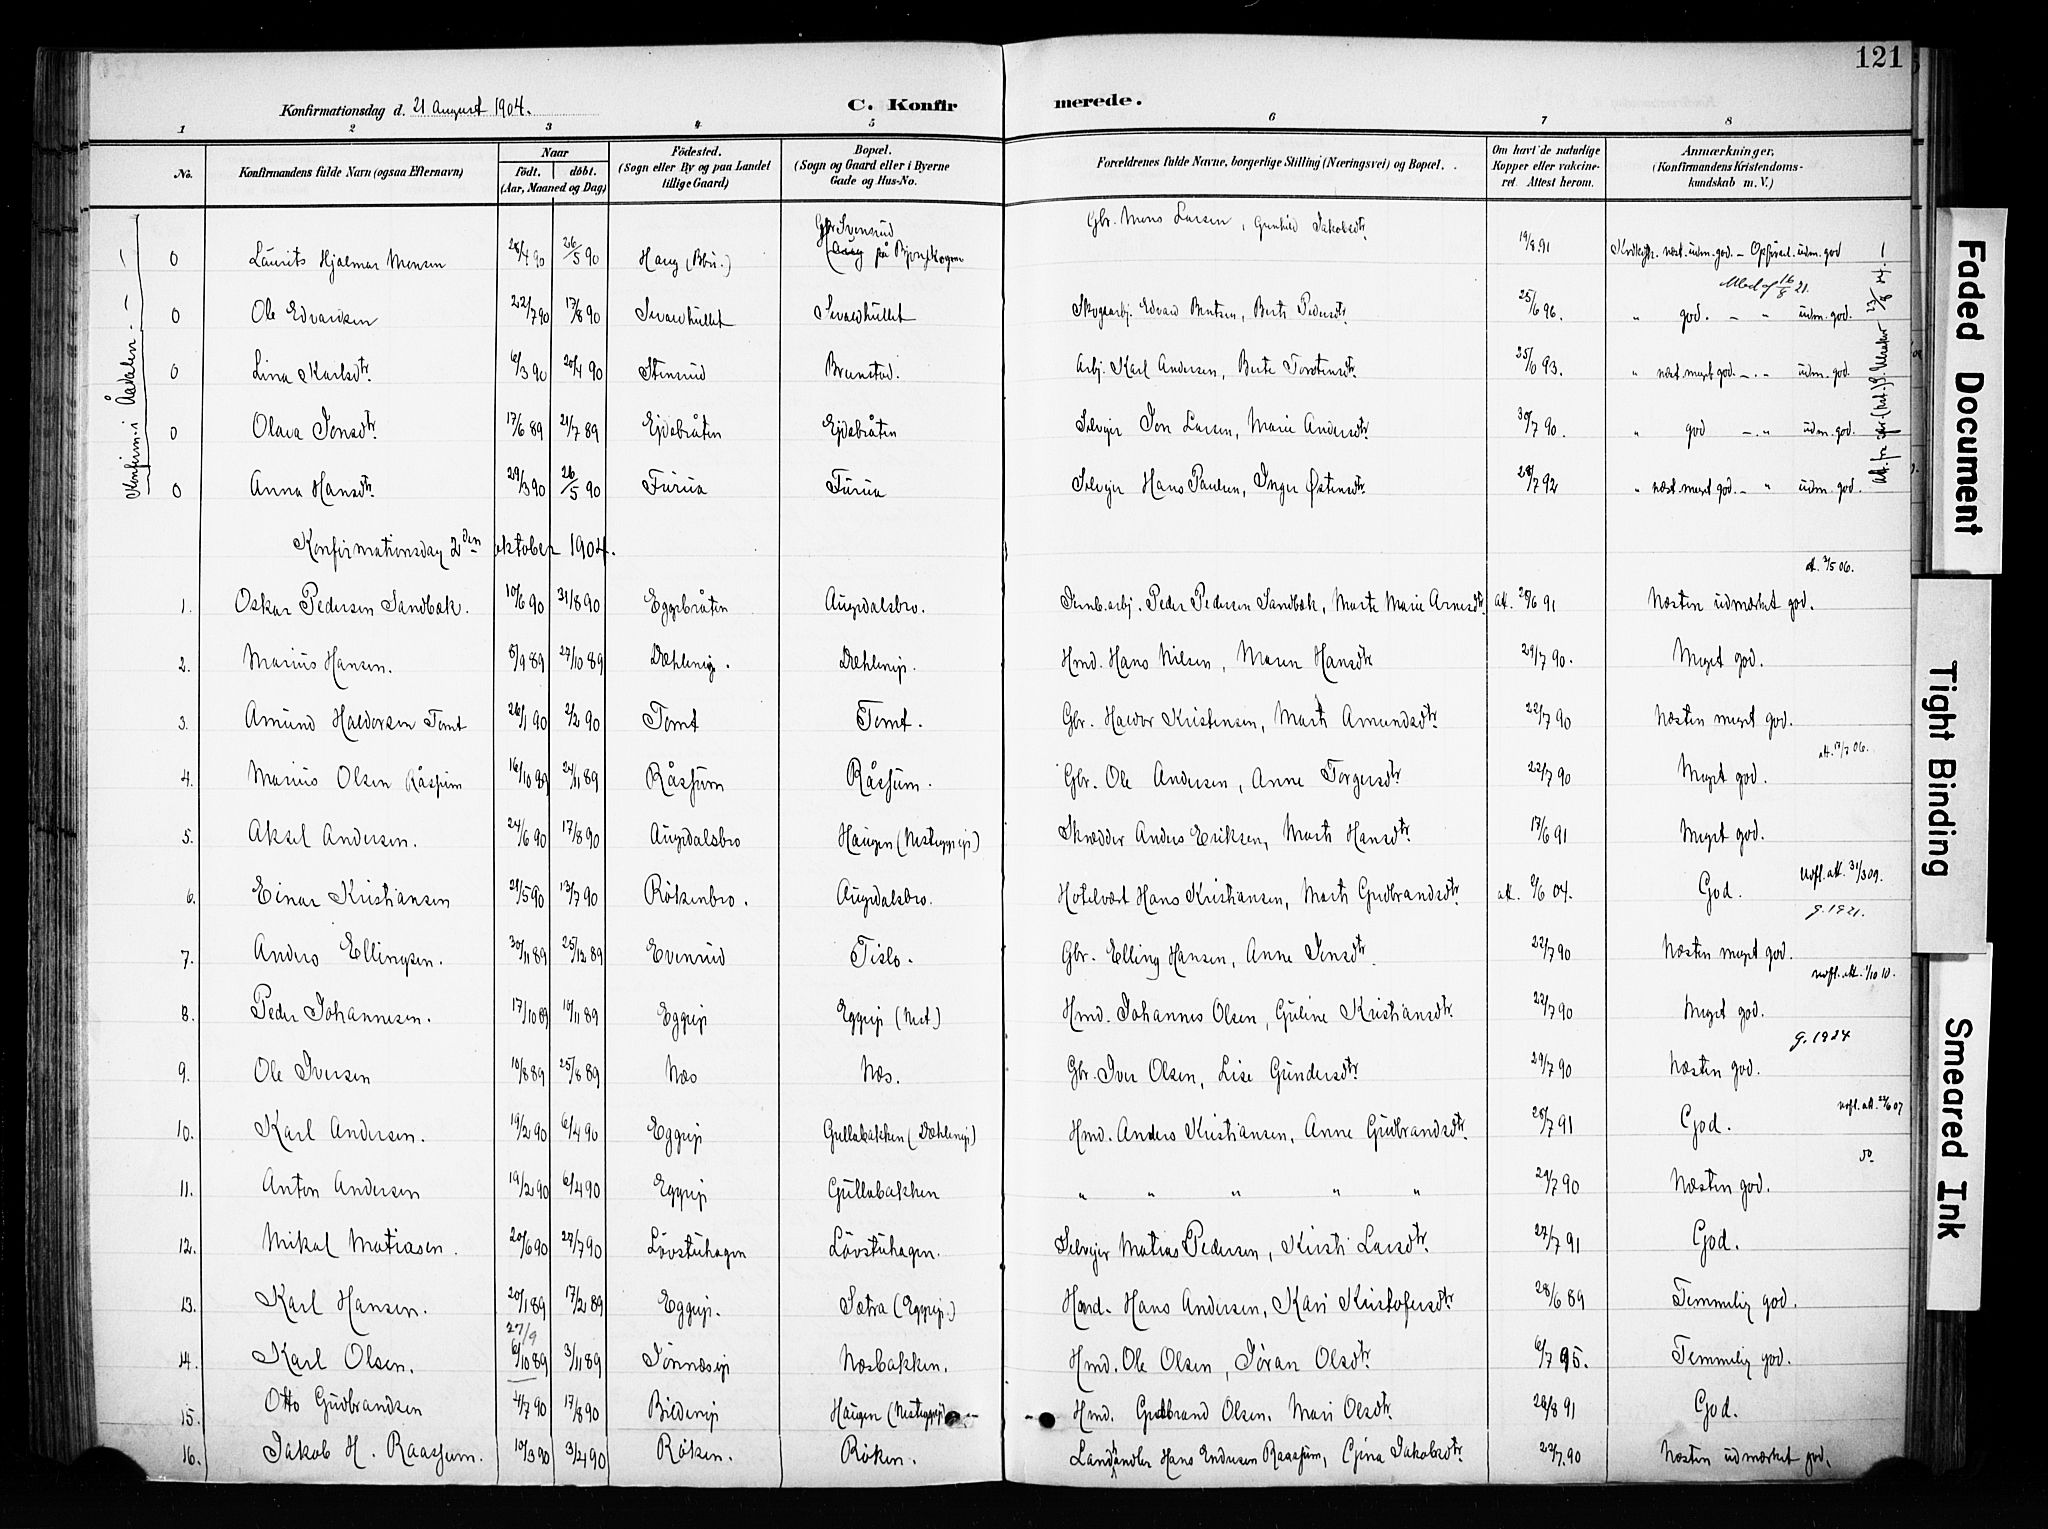 121
Konfirmationsdag d. 21 August 1904. C. Konfir merede.
1 2 3 4 5 6 7 8
No. Konfirmandens fulde Navn (ogsaa Efternavn) Naar født. døbt. (Aar, Maaned og Dag) Fødested. (Sogn eller By og paa Landet tillige Gaard) Bopæl. (Sogn og Gaard eller i Byerne Gade og Hus-No. Forældrenes fulde Navne, borgerlige Stilling (Næringsvei) og Bopæl. Om havt de naturlige Kopper eller vakcineret. Attest herom. Anmærkninger, (Konfirmandens Kristendomskundskab m. V.)
Konfirm. i Ådalen.
0 Laurits Hjalmar Monsen 28/4 90 26/5 90 Haug Gbr. Mons Larsen, Gunhild Jakobsdtr. 19/8 91 næst. udm. god. - Opførsel. udm. god
0 Ole Edvardsen 22/7 90 17/8 90 Skogsarb. Edvard Berntsen, Berte Pedersdtr. 25/6 96. " god. - " udm. god.
0 Lina Karlsdtr. 6/3 90 20/4 90 Stensrud Arbj. Karl Andersen, Berte Torstensdtr. 25/6 93. " næst. meget god. - " udm. god.
0 Olava Jonsdtr. 17/6 89 21/7 89 Ejdebråten Ejdebråten Selvejer Jon Larsen, Marie Andersdtr. 30/7 90. " god - " udm. god.
0 Anna Hansdtr. 29/3 90 26/5 90 Furua Furua Selvejer Hans Paulsen, Inger Østensdtr. 28/7 92 " næst. meget god. - " udm. god.
Konfirmationsdag 2den oktober 1904.
1. Oskar Pedersen Sandbæk. 10/6 90 31/8 90 Eggebråten Augedalsbro. Jernb.arbj. Peder Pedersen Sandbæk, Marte Marie Arnesdtr. att. 29/6 91 Næsten udmærket god. att. 3/5 06.
2. Marius Hansen. 8/9 89 27/10 89 Dæhleneje. Dæhleneje. Hmd. Hans Nilsen, Maren Hansdtr 29/7 90. Meget god.
3. Amund Haldorsen Tomt 26/1 90 2/2 90 Tomt Tomt. Gbr. Haldor Kristensen, Marte Amundsdtr. 22/7 90 Næsten meget god.
4. Marius Olsen Råssum 16/10 89 24/11 89 Råssum Råssum. Gbr. Ole Andersen, Anne Torgersdtr. 22/7 90 Meget god. att. 17/7 06.
5. Aksel Andersen. 24/6 90 17/8 90 Augedalsbro Haugen (Nesteggeeje) Skrædder Anders Eriksen, Marte Hansdtr. 17/6 91 Meget god.
6. Einar Kristiansen 21/5 90 13/7 90 Rökenbro. Augedalsbro. Hotelvært Hans Kristiansen, Marte Gudbrandsdtr. att. 9/6 04. God. Uofl. att. 31/3 09.
g. 1921.
7. Anders Ellingsen. 30/11 89 25/12 89 Evenrud Tislo. Gbr. Elling Hansen, Anne Jensdtr. 22/7 90 Næsten meget god.
8. Peder Johannesen. 17/10 89 10/11 89 Eggeeje Eggeeje (Nest.) Hmd. Johannes Olsen, Guline Kristiansdtr. 22/7 90 Meget god. uofl. att. 1/10 10.
9. Ole Iversen 10/8 89 25/8 89 Næs Næs. Gbr. Iver Olsen, Lise Gundersdtr. 29/7 90 Næsten god. g. 1924
10. Karl Andersen. 19/2 90 6/4 90 Eggeeje Gullabakken (Dæhleneje) Hmd. Anders Kristiansen, Anne Gudbrandsdtr. 25/7 91 God. uofl. att. 22/6 07
11. Anton Andersen 19/2 90 6/4 90 Eggeeje Gullabakken " " " " " 29/7 90 Næsten god. do.
12. Mikal Matiasen. 20/6 90 27/7 90 Lövstuhagen Lövstuhagen. Selvejer Matias Pedersen, Kirsti Larsdtr. 27/7 91 God.
13. Karl Hansen. 20/1 89 17/2 89 Eggeeje. Sætra (Eggeeje.) Hmd. Hans Andersen, Kari Kristofersdtr. 28/6 89 Temmelig god.
27/9
14. Karl Olsen. 6/10 89 3/11 89 Næsbakken. Hmd. Ole Olsen, Jöran Olsdtr. 6/7 95. Temmelig god.
15. Otto Gudbrandsen 4/7 90 17/8 90 Bildeneje Haugen (Nesteggeeje) Hmd. Gudbrand Olsen. Mari Olsdtr. 28/8 91 God.
16. Jakob H. Raassum. 10/3 90 3/4 90 Röken. Röken. Landhandler Hans Endresen Raassum, Gjina Jakobsdtr. 22/7. 90 Næsten udmærket god.
Faded Document
Tight Binding
Smeared Ink